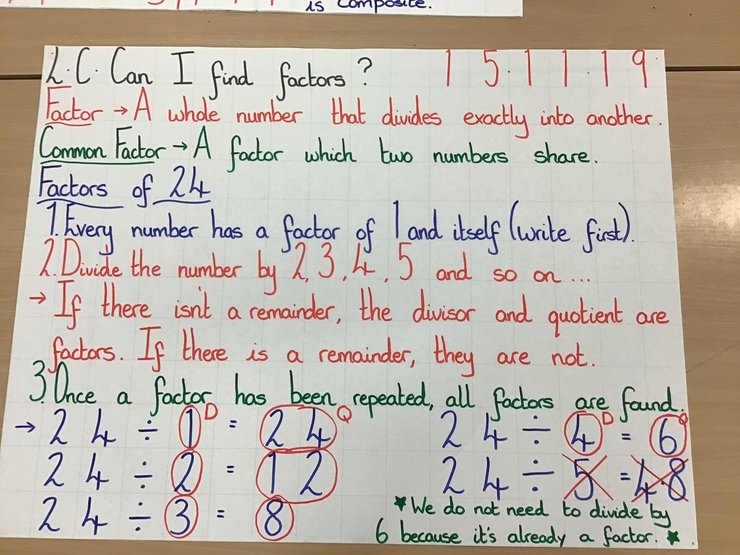 is composite.
L.C. Can I find factors? 15.11.19
Factor → A whole number that divides exactly into another.
Common Factor → A factor which two numbers share.
Factors of 24
1. Every number has a factor of 1 and itself (write first).
2. Divide the number by 2, 3, 4, 5 and so on ...
→ If there isn't a remainder, the divisor and quotient are
factors. If there is a remainder, they are not.
3. Once a factor has been repeated, all factors are found.
→ 24 ÷ 1 D = 24 Q
24 ÷ 2 = 12
24 ÷ 3 = 8
24 ÷ 4 D = 6 Q
24 ÷ 5 = 4.8
* We do not need to divide by
6 because it's already a factor. *